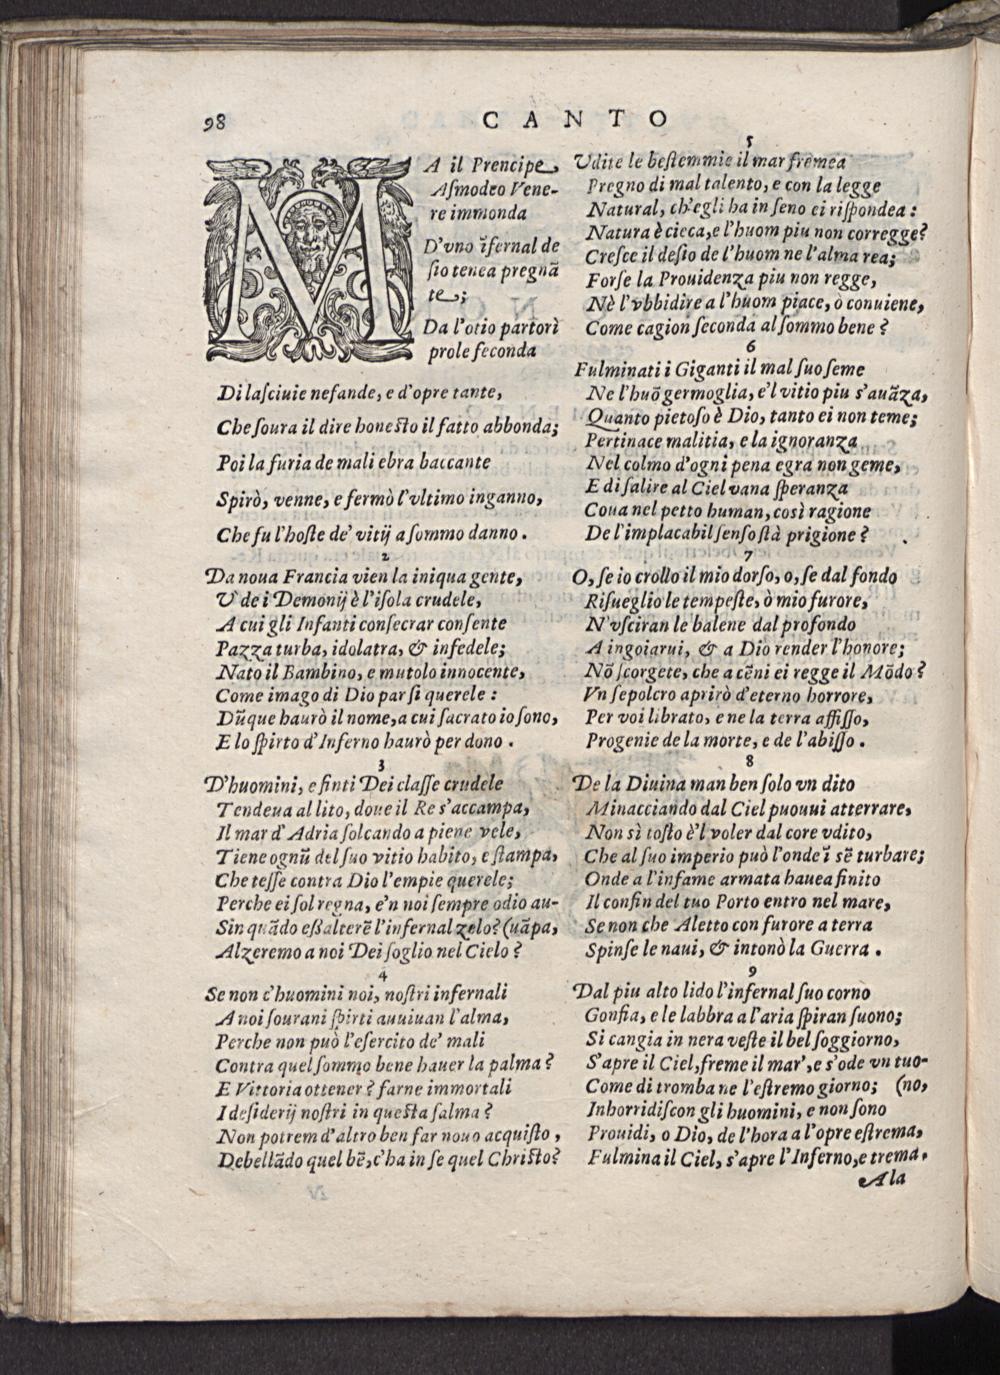 98
CANTO
MA il Prencipe
Asmodeo Vene-
re immonda
D'vno ĩfernal de
sio tenea pregnã
te;
Da l'otio partorì
prole feconda
Di lasciuie nefande, e d'opre tante,
Che soura il dire honesto il fatto abbonda;
Poi la furia de mali ebra baccante
Spirò, venne, e fermò l'vltimo inganno,
Che fu l'hoste de' vitij a sommo danno.
2
Da noua Francia vien la iniqua gente,
V' de i Demonij è l'isola crudele,
A cui gli Infanti consecrar consente
Pazza turba, idolatra, & infedele;
Nato il Bambino, e mutolo innocente,
Come imago di Dio par si querele:
Dũque haurò il nome, a cui sacrato io sono,
E lo spirto d'Inferno haurò per dono.
3
D'huomini, e finti Dei classe crudele
Tendeua al lito, doue il Re s'accampa,
Il mar d'Adria solcando a piene vele,
Tiene ognũ del suo vitio habito, e stampa,
Che tesse contra Dio l'empie querele;
Perche ei sol regna, e'n noi sempre odio au-
Sin quãdo essalterẽ l'infernal zelo? (uãpa,
Alzeremo a noi Dei soglio nel Cielo?
4
Se non c'huomini noi, nostri infernali
A noi sourani spirti auuiuan l'alma,
Perche non può l'esercito de' mali
Contra quel sommo bene hauer la palma?
E Vittoria ottener? farne immortali
I desiderij nostri in questa salma?
Non potrem d'altro ben far nouo acquisto,
Debellãdo quel bẽ, c'ha in se quel Christo?
5
Vdite le bestemmie il mar fremea
Pregno di mal talento, e con la legge
Natural, ch'egli ha in seno ei rispondea:
Natura è cieca, e l'huom piu non corregge?
Cresce il desio de l'huom ne l'alma rea;
Forse la Prouidenza piu non regge,
Nè l'vbbidire a l'huom piace, ò conuiene,
Come cagion seconda al sommo bene?
6
Fulminati i Giganti il mal suo seme
Ne l'huõ germoglia, e'l vitio piu s'auãza,
Quanto pietoso è Dio, tanto ei non teme;
Pertinace malitia, e la ignoranza
Nel colmo d'ogni pena egra non geme,
E di salire al Ciel vana speranza
Coua nel petto human, così ragione
De l'implacabil senso stà prigione?
7
O, se io crollo il mio dorso, o, se dal fondo
Risueglio le tempeste, ò mio furore,
N'vsciran le balene dal profondo
A ingoiarui, & a Dio render l'honore;
Nõ scorgete, che a cẽni ei regge il Mõdo?
Vn sepolcro aprirò d'eterno horrore,
Per voi librato, e ne la terra affisso,
Progenie de la morte, e de l'abisso.
8
De la Diuina man ben solo vn dito
Minacciando dal Ciel puouui atterrare,
Non sì tosto è'l voler dal core vdito,
Che al suo imperio può l'onde ĩ sẽ turbare;
Onde a l'infame armata hauea finito
Il confin del tuo Porto entro nel mare,
Se non che Aletto con furore a terra
Spinse le naui, & intonò la Guerra.
9
Dal piu alto lido l'infernal suo corno
Gonfia, e le labbra a l'aria spiran suono;
Si cangia in nera veste il bel soggiorno,
S'apre il Ciel, freme il mar', e s'ode vn tuo-
Come di tromba ne l'estremo giorno; (no,
Inhorridiscon gli huomini, e non sono
Prouidi, o Dio, de l'hora a l'opre estrema,
Fulmina il Ciel, s'apre l'Inferno, e trema.
A la